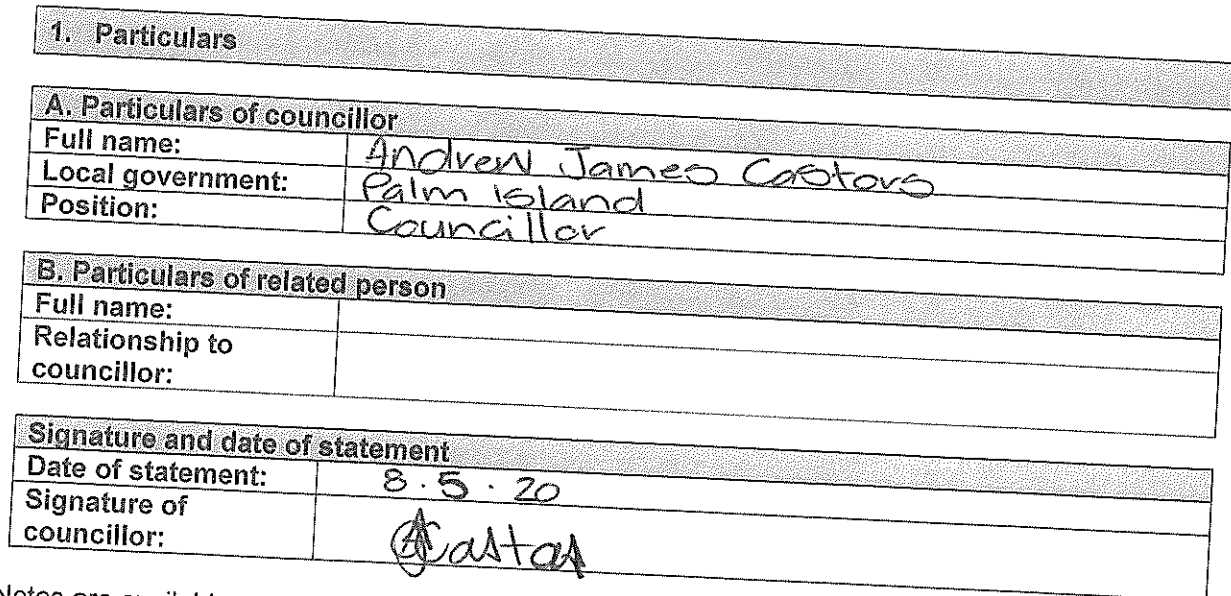 1. Particulars
A. Particulars of councillor
Full name: Andrew James Castors
Local government: Palm Island
Position: Councillor
B. Particulars of related person
Full name:
Relationship to
councillor:
Signature and date of statement
Date of statement: 8.5.20
Signature of
councillor: